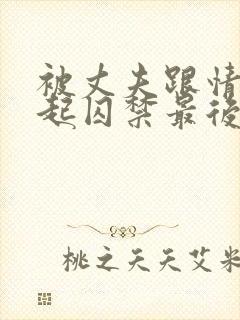 被丈夫跟情
起囚禁最後
桃之天天艾米